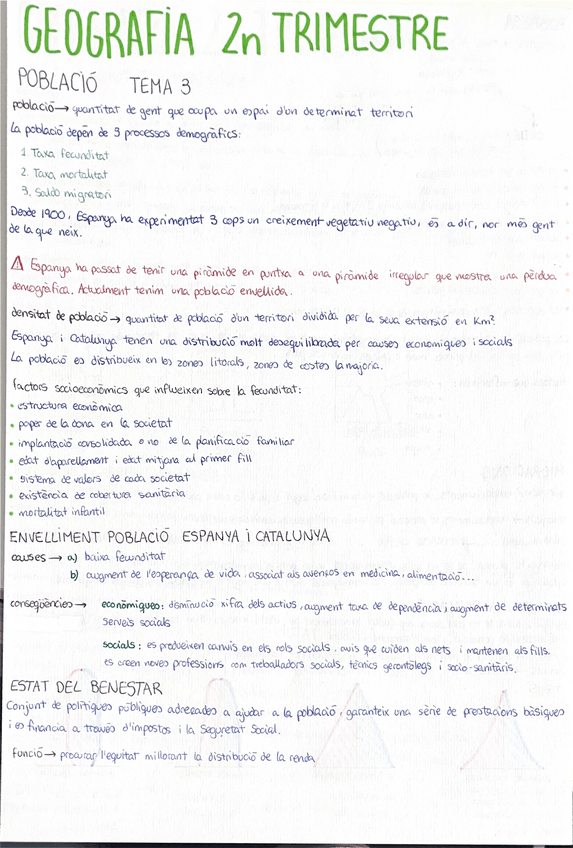 GEOGRAFIA 2n TRIMESTRE
POBLACIÓ TEMA 3
població → quantitat de gent que ocupa un espai d'un determinat territori
La població depèn de 3 processos demogràfics:
1. Taxa fecunditat
2. Taxa mortalitat
3. Saldo migratori
Desde 1900, Espanya ha experimentat 3 cops un creixement vegetatiu negatiu, és a dir, nor més gent
de la que neix.
⚠ Espanya ha passat de tenir una piràmide en puntxa a una piràmide irregular que mostra una pèrdua
demogràfica. Actualment tenim una població envellida.
densitat de població → quantitat de població d'un territori dividida per la seua extensió en Km².
Espanya i Catalunya tenen una distribució molt desequilibrada per causes econòmiques i socials
La població es distribueix en les zones litorals, zones de costes la majoria.
factors socioeconòmics que influeixen sobre la fecunditat:
• estructura econòmica
• paper de la dona en la societat
• implantació consolidada o no de la planificació familiar
• edat d'aparellament i edat mitjana al primer fill
• sistema de valors de cada societat
• existència de cobertura sanitària
• mortalitat infantil
ENVELLIMENT POBLACIÓ ESPANYA i CATALUNYA
causes → a) baixa fecunditat
b) augment de l'esperança de vida, associat als avenços en medicina, alimentació...
conseqüències → econòmiques: disminució xifra dels actius, augment taxa de dependència i augment de determinats
serveis socials
socials: es produeixen canvis en els rols socials, avis que cuiden als nets i mantenen als fills.
es creen noves professions com treballadors socials, tècnics gerontòlegs i socio-sanitàris.
ESTAT DEL BENESTAR
Conjunt de polítiques públiques adreçades a ajudar a la població, garanteix una sèrie de prestacions bàsiques
i es financia a través d'impostos i la Seguretat Social.
Funció → procurar l'equitat millorant la distribució de la renda